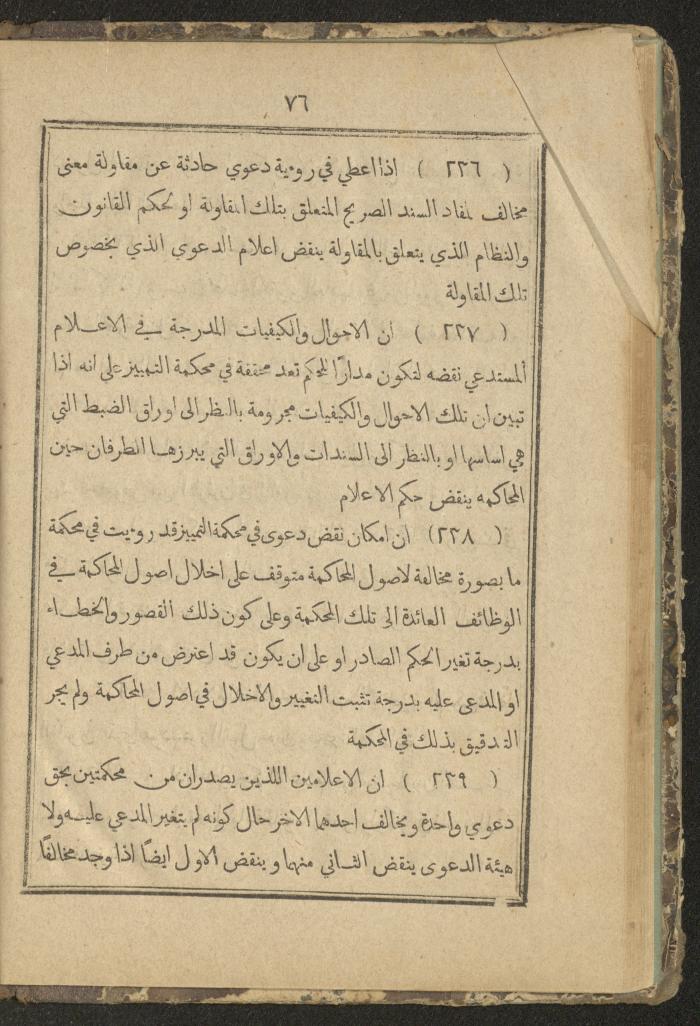 ٧٦
( ٢٣٦ ) اذا اعطي في روءية دعوي حادثة عن مقاولة معنى
مخالف لمفاد السند الصريح المتعلق بتلك المقاولة او لحكم القانون
والنظام الذي يتعلق بالمقاولة ينقض اعلام الدعوي الذي بخصوص
تلك المقاولة
( ٢٣٧ ) ان الاحوال والكيفيات المدرجة في الاعلام
المستدعي نقضه لتكون مدارًا للحكم تعد محققة في محكمة التمييز على انه اذا
تبين ان تلك الاحوال والكيفيات مجرومة بالنظر الى اوراق الضبط التي
هي اساسها او بالنظر الى السندات والاوراق التي يبرزها الطرفان حين
المحاكمه ينقض حكم الاعلام
( ٢٣٨ ) ان امكان نقض دعوى في محكمة التمييز قد روءيت في محكمة
ما بصورة مخالفة لاصول المحاكمة متوقف على اخلال اصول المحاكمة في
الوظائف العائدة الى تلك المحكمة وعلى كون ذلك القصور والخطاء
بدرجة تغير الحكم الصادر او على ان يكون قد اعترض من طرف المدعي
او المدعى عليه بدرجة تثبت التغيير والاخلال في اصول المحاكمة ولم يجر
التدقيق بذلك في المحكمة
( ٢٣٩ ) ان الاعلامين اللذين يصدران من محكمتين بحق
دعوي واحدة ويخالف احدهما الاخر حال كونه لم يتغير المدعي عليه ولا
هيئة الدعوى ينقض الثاني منهما وينقض الاول ايضًا اذا وجد مخالفًا